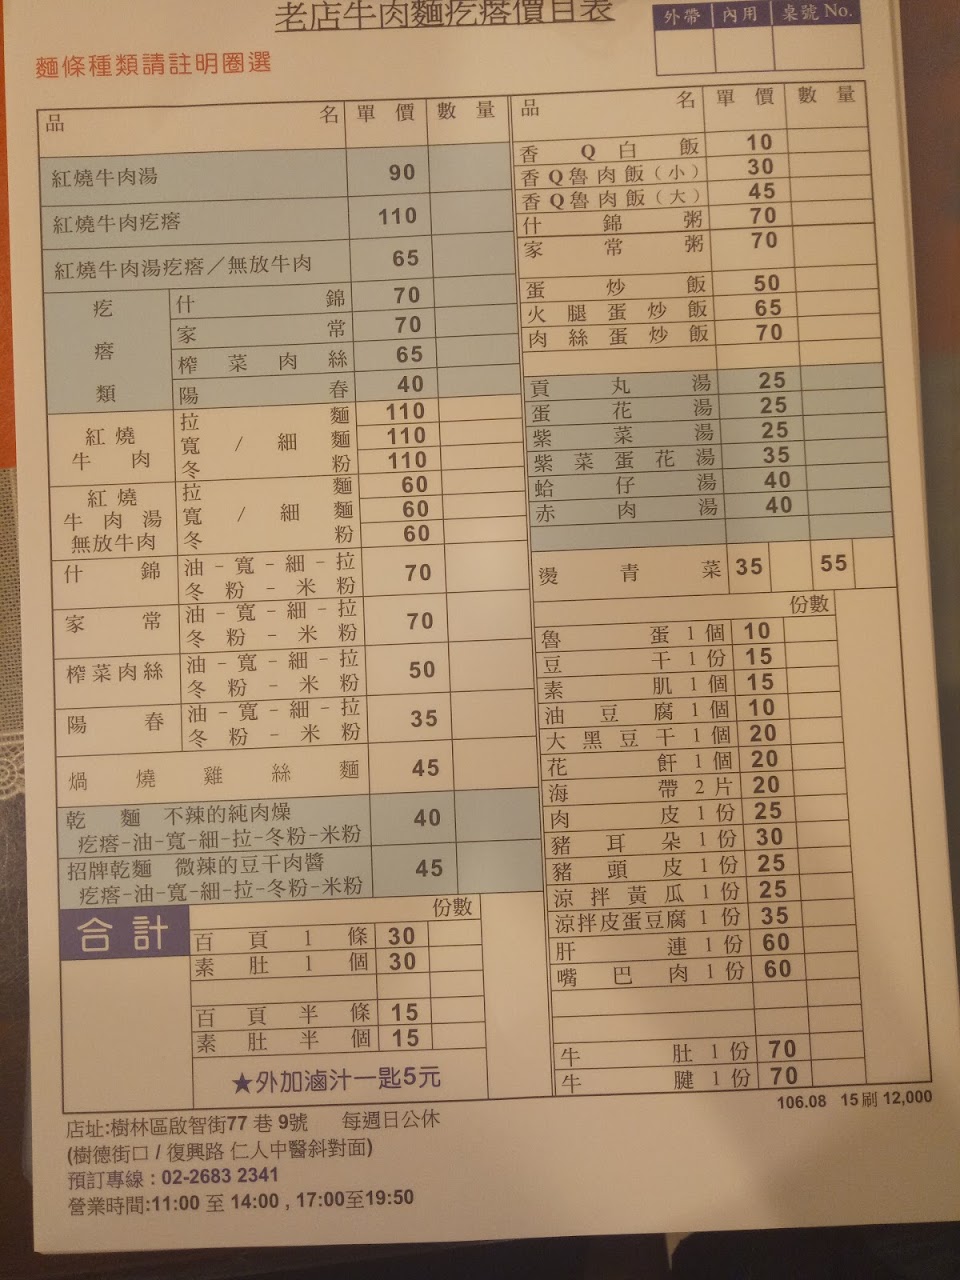 老店牛肉麵疙瘩價目表
外帶 內用 桌號 No.
麵條種類請註明圈選
品名 單價 數量
紅燒牛肉湯 90
紅燒牛肉疙瘩 110
紅燒牛肉湯疙瘩／無放牛肉 65
疙瘩類
什錦 70
家常 70
榨菜肉絲 65
陽春 40
紅燒牛肉
拉麵 110
寬/細麵 110
冬粉 110
紅燒牛肉湯無放牛肉
拉麵 60
寬/細麵 60
冬粉 60
什錦 油-寬-細-拉 冬粉-米粉 70
家常 油-寬-細-拉 冬粉-米粉 70
榨菜肉絲 油-寬-細-拉 冬粉-米粉 50
陽春 油-寬-細-拉 冬粉-米粉 35
焗燒雞絲麵 45
乾麵 不辣的純肉燥
疙瘩-油-寬-細-拉-冬粉-米粉 40
招牌乾麵 微辣的豆干肉醬
疙瘩-油-寬-細-拉-冬粉-米粉 45
合計
份數
百頁1條 30
素肚1個 30
百頁半條 15
素肚半個 15
★外加滷汁一匙5元
品名 單價 數量
香Q白飯 10
香Q魯肉飯（小） 30
香Q魯肉飯（大） 45
什錦粥 70
家常粥 70
蛋炒飯 50
火腿蛋炒飯 65
肉絲蛋炒飯 70
貢丸湯 25
蛋花湯 25
紫菜湯 25
紫菜蛋花湯 35
蛤仔湯 40
赤肉湯 40
燙青菜 35 55
份數
魯蛋1個 10
豆干1份 15
素肌1個 15
油豆腐1個 10
大黑豆干1個 20
花飦1個 20
海帶2片 20
肉皮1份 25
豬耳朵1份 30
豬頭皮1份 25
涼拌黃瓜1份 25
涼拌皮蛋豆腐1份 35
肝連1份 60
嘴巴肉1份 60
牛肚1份 70
牛腱1份 70
106.08 15刷 12,000
店址:樹林區啟智街77 巷 9號 每週日公休
(樹德街口 / 復興路 仁人中醫斜對面)
預訂專線 : 02-2683 2341
營業時間:11:00 至 14:00 , 17:00至19:50